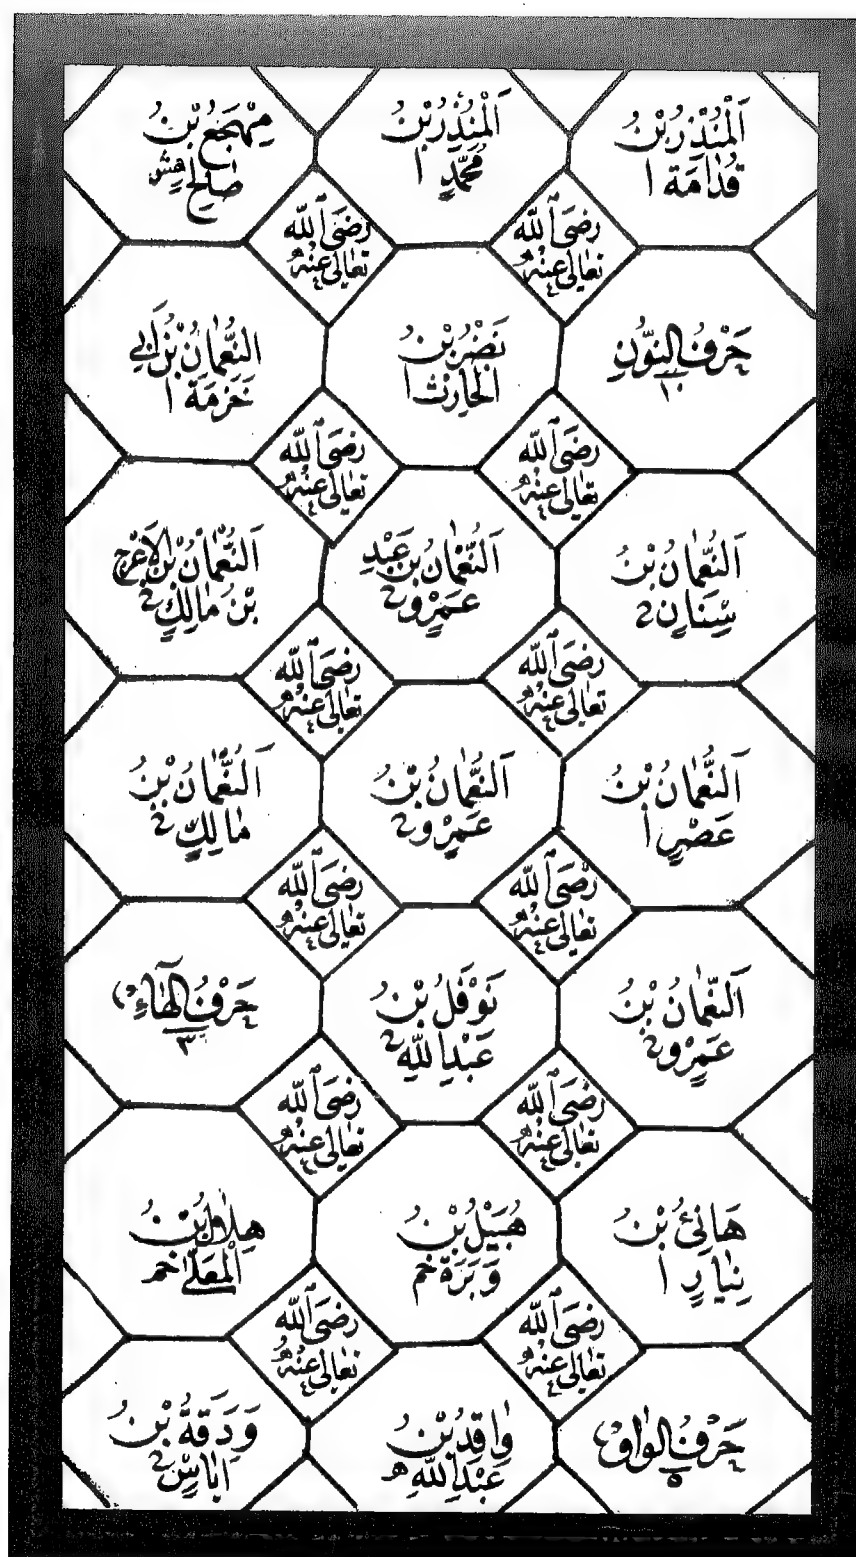 اَلْمُنْذِرُ بْنُ
قُدَامَةَ ا
اَلْمُنْذِرُ بْنُ
مُحَمَّدٍ ا
مِهْجَعُ بْنُ
صَالِحٍ هش
رَضِيَ ٱللّٰه
تَعَالٰى عَنْهُ
رَضِيَ ٱللّٰه
تَعَالٰى عَنْهُ
حَرْفُ النُّوْنِ
١٠
نَضْرُ بْنُ
الْحَارِثْ ا
اَلنُّعْمَانُ بْنُ اَبِي
خَزْمَةَ ا
رَضِيَ ٱللّٰه
تَعَالٰى عَنْهُ
رَضِيَ ٱللّٰه
تَعَالٰى عَنْهُ
اَلنُّعْمَانُ بْنُ
سِنَانٍ
اَلنُّعْمَانُ بْنُ عَبْدِ
عَمْرٍو
اَلنُّعْمَانُ بْنُ الْاَعْرَجِ
بْنُ مَالِكٍ
رَضِيَ ٱللّٰه
تَعَالٰى عَنْهُ
رَضِيَ ٱللّٰه
تَعَالٰى عَنْهُ
اَلنُّعْمَانُ بْنُ
عَصْرٍ ا
اَلنُّعْمَانُ بْنُ
عَمْرٍو
اَلنُّعْمَانُ بْنُ
مَالِكٍ
رَضِيَ ٱللّٰه
تَعَالٰى عَنْهُ
رَضِيَ ٱللّٰه
تَعَالٰى عَنْهُ
اَلنُّعْمَانُ بْنُ
عَمْرٍو
نَوْفَلُ بْنُ
عَبْدِ اللّٰهِ
حَرْفُ الْهَاءِ
٣
رَضِيَ ٱللّٰه
تَعَالٰى عَنْهُ
رَضِيَ ٱللّٰه
تَعَالٰى عَنْهُ
هَانِئُ بْنُ
نِيَارٍ ا
هُبَيْلُ بْنُ
وَبَرَةَ خم
هِلَالُ بْنُ
الْمُعَلّٰى خم
رَضِيَ ٱللّٰه
تَعَالٰى عَنْهُ
رَضِيَ ٱللّٰه
تَعَالٰى عَنْهُ
حَرْفُ الْوَاوِ
٥
وَاقِدُ بْنُ
عَبْدِ اللّٰهِ ه
وَدَقَةُ بْنُ
اِيَاسٍ